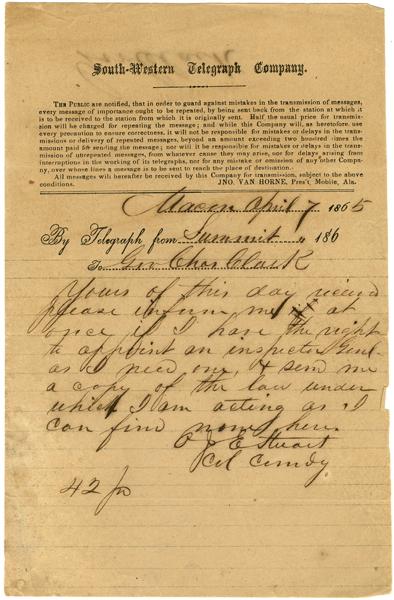 South-Western Telegraph Company.
The Public are notified, that in order to guard against mistakes in the transmission of messages,
every message of importance ought to be repeated, by being sent back from the station at which it
is to be received to the station from which it is originally sent. Half the usual price for transmis-
sion will be charged for repeating the message; and while this Company will, as heretofore, use
every precaution to ensure correctness, it will not be responsible for mistakes or delays in the trans-
missions or delivery of repeated messages, beyond an amount exceeding two hundred times the
amount paid for sending the message; nor will it be responsible for mistakes or delays in the trans-
mission of unrepeated messages, from whatever cause they may arise, nor for delays arising from
interruptions in the working of its telegraphs, nor for any mistake or omission of any other Compa-
ny, over whose lines a message is to be sent to reach the place of destination.
All messages will hereafter be received by this Company for transmission, subject to the above
conditions. JNO. VAN HORNE, Pres't, Mobile, Ala.
Macon April 7 1865
By Telegraph from Summit " 186
To Gov Chas Clark
Yours of this day recived
please inform me at
once if I have the right
to appoint an inspector Genl
as I need one, & send me
a copy of the law under
which I am acting as I
can find none here.
E Stuart
Col Comdg
42